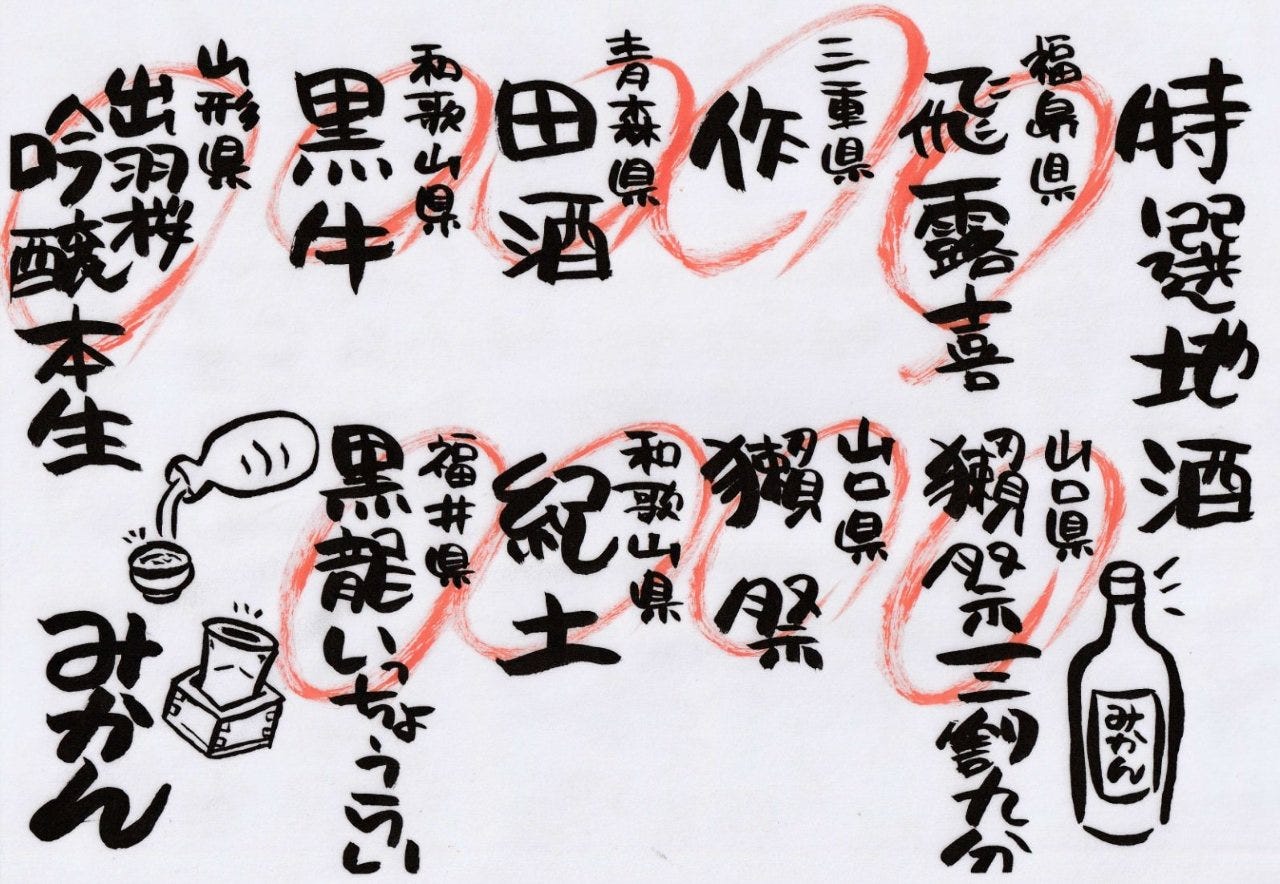 特選地酒
福島県
飛露喜
三重県
作
青森県
田酒
和歌山県
黒牛
山形県
出羽桜
吟醸本生
みかん
山口県
獺祭三割九分
山口県
獺祭
和歌山県
紀土
福井県
黒龍いっちょうらい
みかん